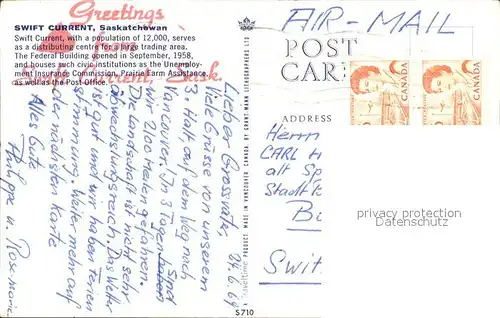 Greetings
SWIFT CURRENT, Saskatchewan
Swift Current, with a population of 12,000, serves
as a distributing centre for a large trading area.
The Federal Building opened in September, 1958,
and houses such civic institutions as the Unemploy-
ment Insurance Commission, Prairie Farm Assistance,
as well as the Post Office.
Current, Sask.
AIR-MAIL
POST
CAR
ADDRESS
CANADA
CANADA
24.6.69
Lieber Grossvater,
Viele Grüsse von unserem
3. Halt auf dem Weg nach
Vancouver. In 3 Tagen sind
wir 2100 Meilen gefahren.
Die Landschaft ist nicht sehr
abwechslungsreich. Das Wetter
ist gut und wir haben Ferien
stimmung. Weiter mehr auf
der nächsten Karte.
Alles Gute
Philippe u. Rosemarie
MADE IN VANCOUVER, CANADA, BY GRANT-MANN LITHOGRAPHERS LTD.
S710
Herrn
CARL H
alt Sp
Stadt
B
Swit
privacy protection
Datenschutz